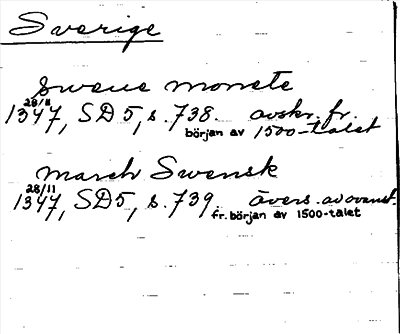 Sverige
swene monete
28/11
1347, SD5, s. 738. avskr. fr.
början av 1500-talet
march Swensk
28/11
1347, SD5, s. 739. övers. av ovanst.
fr. början av 1500-talet